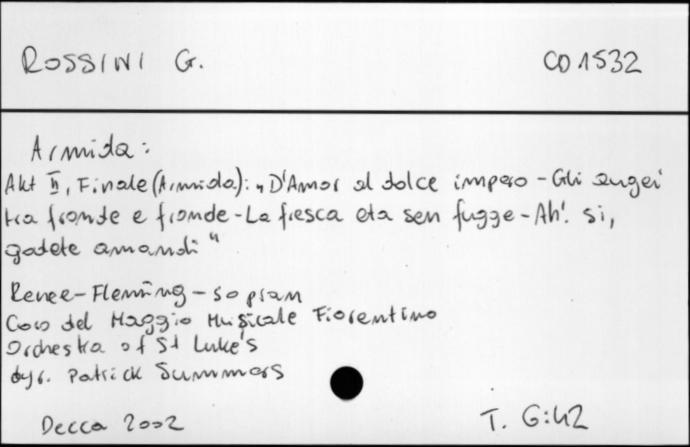 ROSSINI G.
CD 1532
Armida:
Akt II, Finale (Armida): „D'Amor al dolce impero - Gli augei
tra fronde e fronde - La fresca eta sen fugge - Ah! si,
godete amandi"
Renee - Fleming - sopran
Coro del Maggio Musicale Fiorentino
Orchestra of St Luke's
dyr. Patrick Summers
Decca 2002
T. 6:42